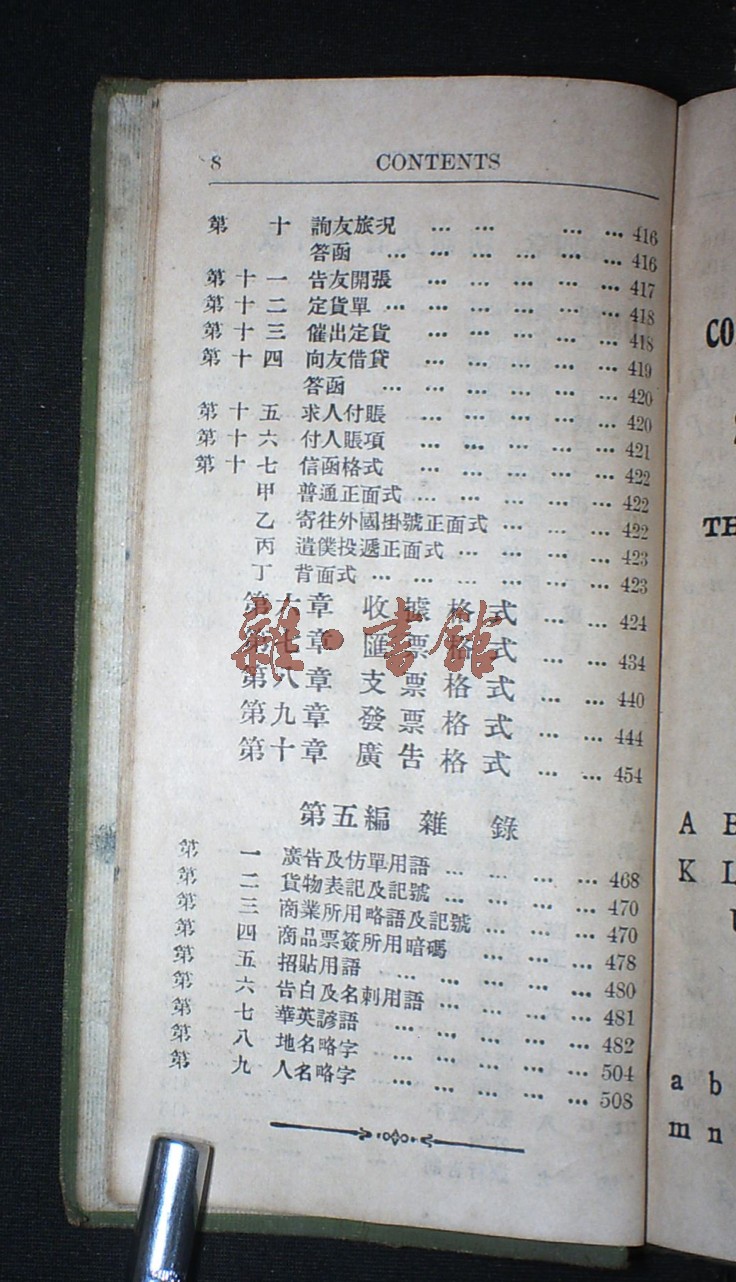 8 CONTENTS
第 十 詢友旅況 … … … … 416
答函 … … … … … … 416
第十一 告友開張 … … … … … 417
第十二 定貨單 … … … … … … 418
第十三 催出定貨 … … … … … 418
第十四 向友借貸 … … … … … 419
答函 … … … … … … 420
第十五 求人付賬 … … … … … 420
第十六 付人賬項 … … … … … 421
第十七 信函格式 … … … … … 422
甲 普通正面式 … … … … … 422
乙 寄往外國掛號正面式 … … … 422
丙 遣僕投遞正面式 … … … … 423
丁 背面式 … … … … … … 423
第六章 收據格式 … … 424
第七章 匯票格式 … … 434
第八章 支票格式 … … 440
第九章 發票格式 … … 444
第十章 廣告格式 … … 454
雜·書館
第五編 雜 錄
第 一 廣告及仿單用語 … … … … 468
第 二 貨物表記及記號 … … … … 470
第 三 商業所用略語及記號 … … … 470
第 四 商品票簽所用暗碼 … … … 478
第 五 招貼用語 … … … … … 480
第 六 告白及名刺用語 … … … … 481
第 七 華英諺語 … … … … … 482
第 八 地名略字 … … … … … 504
第 九 人名略字 … … … … … 508
CO
TH
A B
K L
U
a b
m n